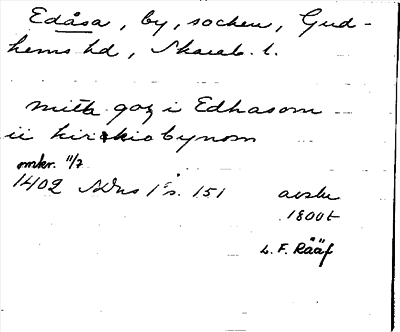 Edåsa, by, socken, Gud-
hems hd, Skarab. l.
mith goz i Edhasom
ii kirkio bynom
omkr. 11/7
1402 SDns 1 s. 151 avskr
1800t
L. F. Rääf